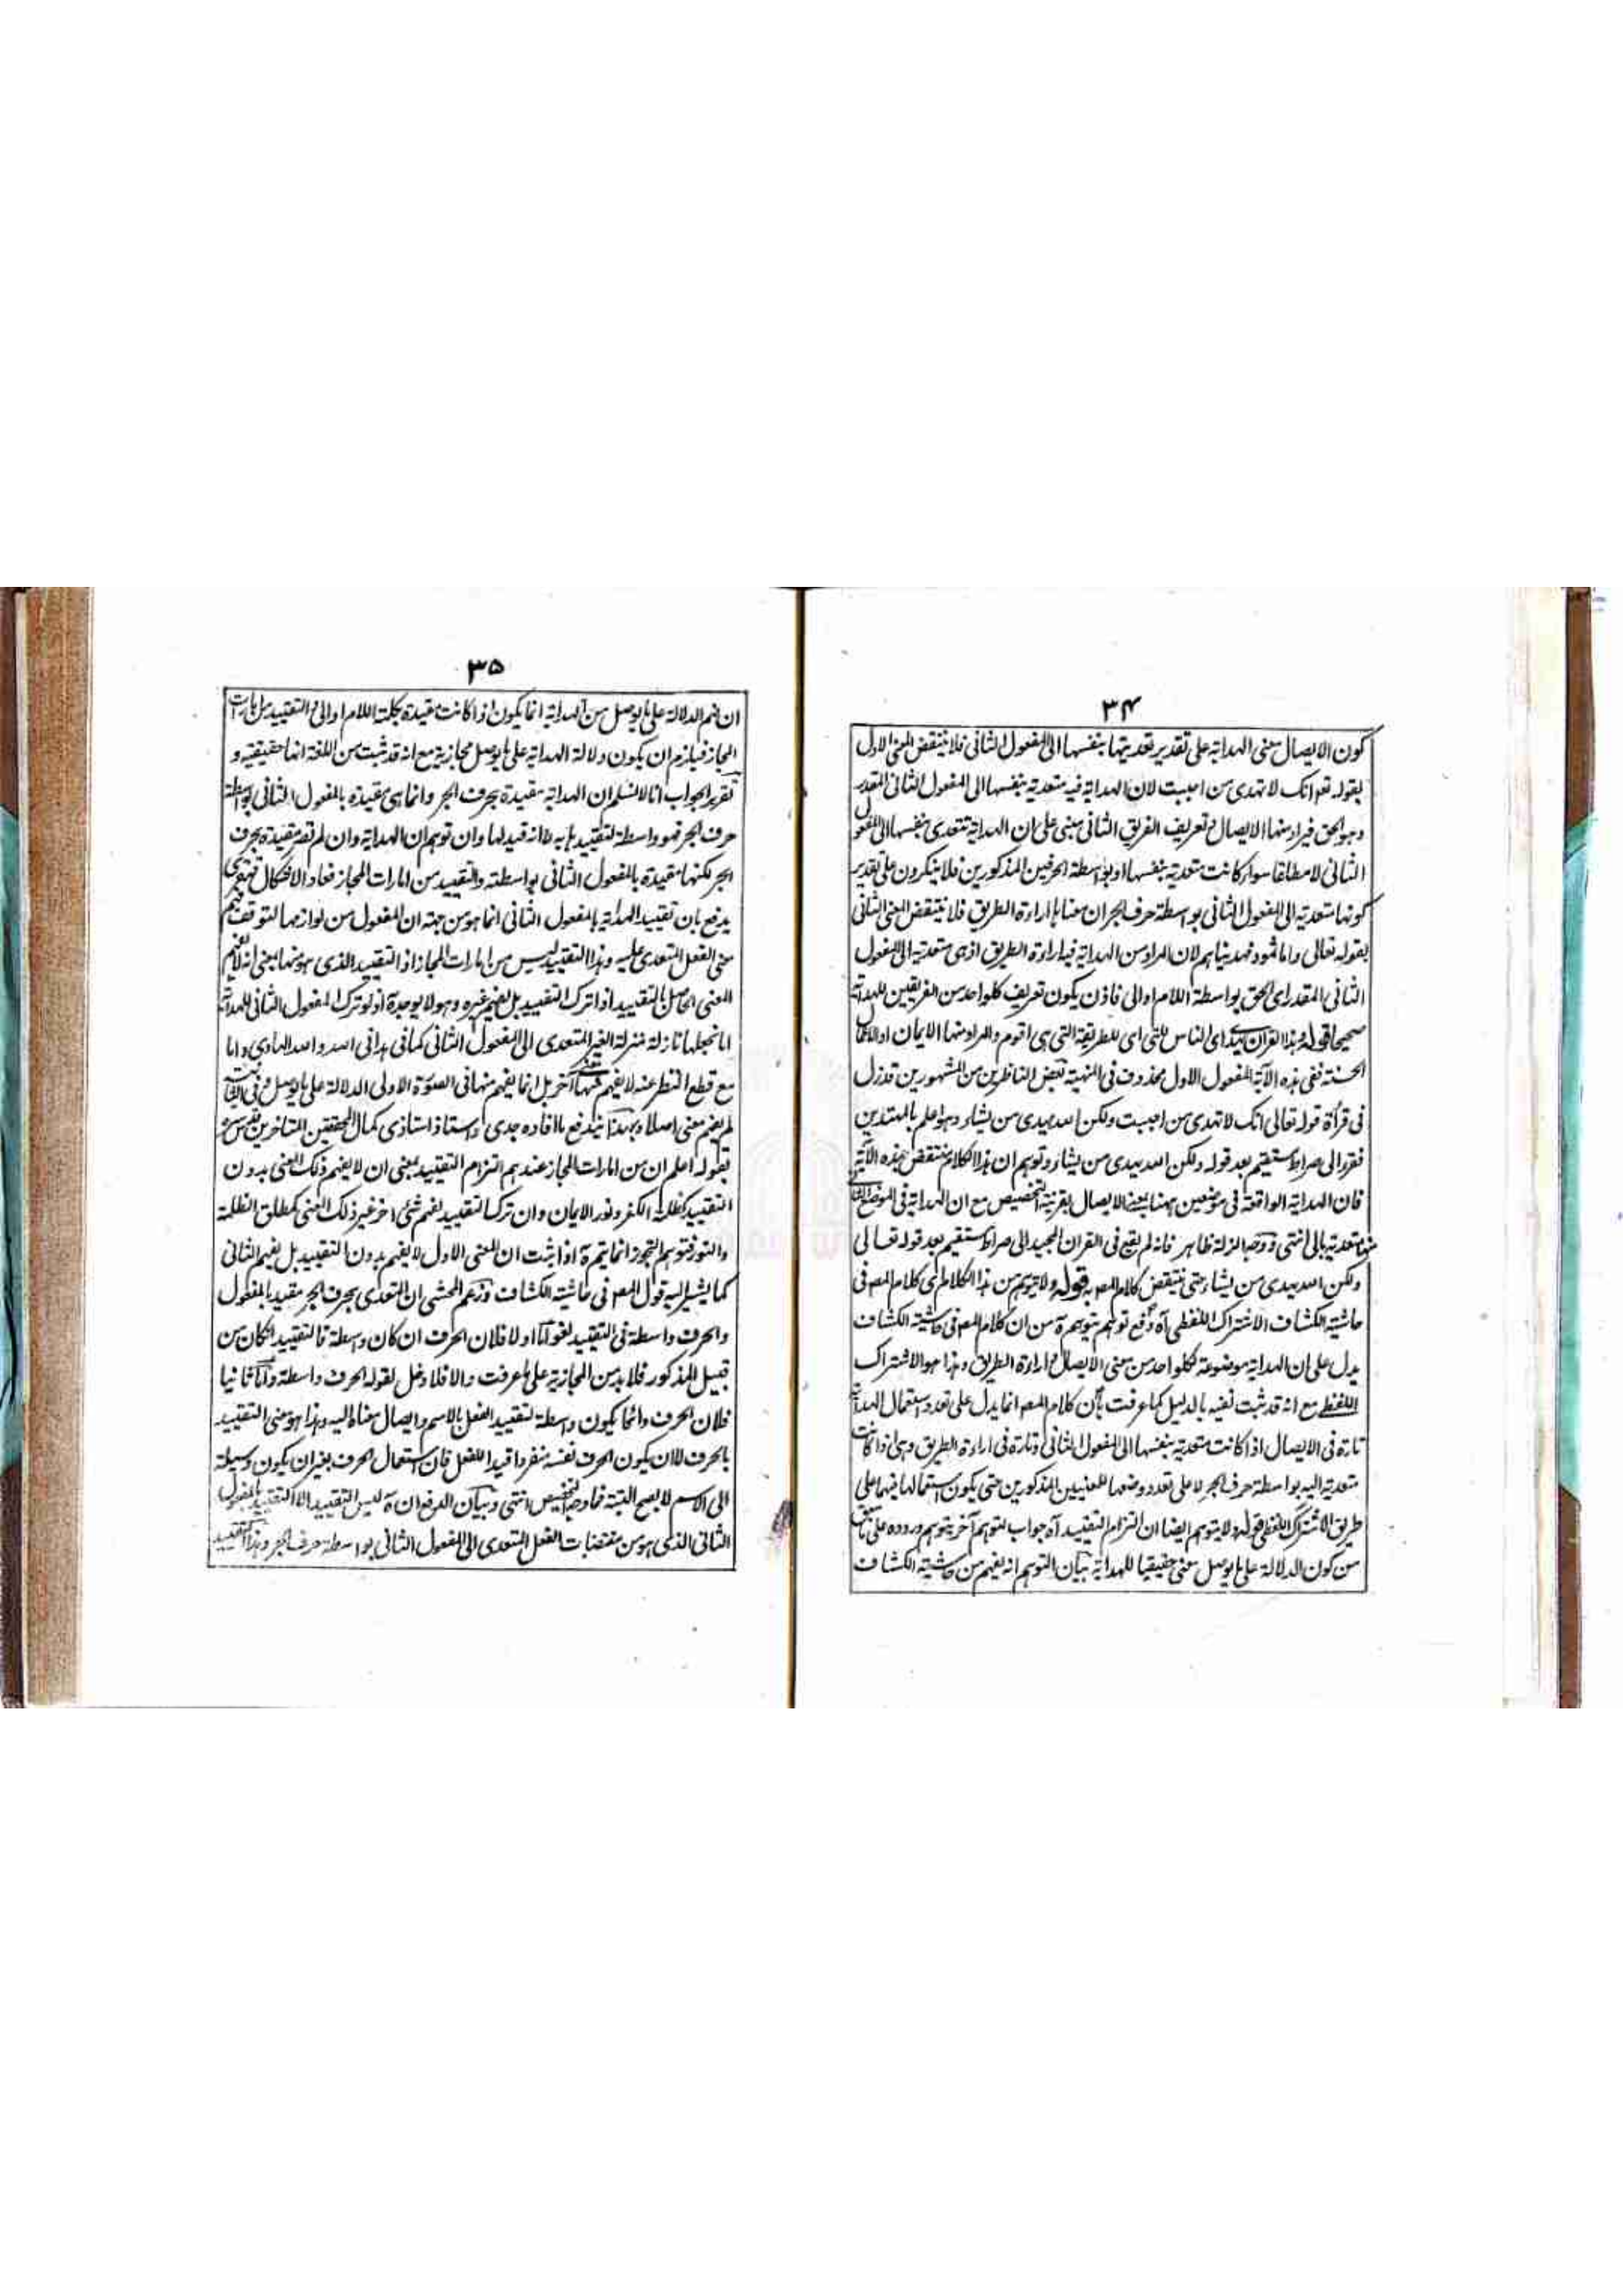 ٣٤
كون الايصال معنى الهداية على تقدير تعديتها بنفسها الى المفعول الثانى فلا ينتقض المعنى الاول
بقوله تعم انك لا تهدى من احببت لان الهداية فيه متعدية بنفسها الى المفعول الثانى المقدر
وهو الحق فيراد منها الايصال وتعريف الفريق الثانى مبنى على ان الهداية تتعدى بنفسها الى المفعول
الثانى لا مطلقا سواء كانت متعدية بنفسها او بواسطة الحرفين المذكورين فلا ينكرون على تقدير
كونها متعدية الى المفعول الثانى بواسطة حرف الجر ان معناها اراءة الطريق فلا ينتقض المعنى الثانى
بقوله تعالى واما ثمود فهديناهم لان المراد من الهداية فيه اراءة الطريق اذ هى متعدية الى المفعول
الثانى المقدر اى الحق بواسطة اللام او الى فاذن يكون تعريف كلواحد من الفريقين للهداية
صحيحا قوله وهذا القران يهدى اى الناس للتى اى للطريقة التى هى اقوم والمراد منها الايمان او الاعمال
الحسنة ففى هذه الآية المفعول الاول محذوف فى المنهية بعض الناظرين من المشهورين قد زل
فى قرأة قوله تعالى انك لا تهدى من احببت ولكن الله يهدى من يشاء وهو اعلم بالمهتدين
فقرء الى صراط مستقيم بعد قوله ولكن الله يهدى من يشاء وتوهم ان هذا الكلام منتقض بهذه الآية
فان الهداية الواقعة فى موضعين ههنا بمعنى الايصال بقرينة التخصيص مع ان الهداية فى الموضع الثانى
منها متعدية بالى انتهى ووجه الزلة ظاهر فانه لم يقع فى القران المجيد الى صراط مستقيم بعد قوله تعالى
ولكن الله يهدى من يشاء حتى ينتقض كلام المصـ به قوله ولا يتوهم من هذا الكلام اى كلام المصـ فى
حاشية الكشاف الاشتراك اللفظى آه دفع توهم يتوهم من ان كلام المصـ فى حاشية الكشاف
يدل على ان الهداية موضوعة لكلواحد من معنى الايصال واراءة الطريق وهذا هو الاشتراك
اللفظى مع انه قد ثبت نفيه بالدليل كما عرفت بان كلام المصـ انما يدل على تعدد استعمال الهداية
تارة فى الايصال اذا كانت متعدية بنفسها الى المفعول الثانى وتارة فى اراءة الطريق وهى اذا كانت
متعدية اليه بواسطة حرف الجر لا على تعدد وضعها للمعنيين المذكورين حتى يكون استعمالها فيهما على
طريق الاشتراك اللفظى قوله ولا يتوهم ايضا ان التزام التقييد آه جواب لتوهم آخر يتوهم وروده على
من كون الدلالة على ما يوصل معنى حقيقيا للهداية بيان التوهم انه يفهم من حاشية الكشاف
٣٥
ان فهم الدلالة على ما يوصل من الهداية انما يكون اذا كانت مقيدة بكلمة اللام او الى والتقييد من امارات
المجاز فيلزم ان يكون دلالة الهداية على ما يوصل مجازية مع انه قد ثبت من اللغة انها حقيقية و
تقرير الجواب انا لا نسلم ان الهداية مقيدة بحرف الجر وانما هى مقيدة بالمفعول الثانى بواسطة
حرف الجر فهو واسطة لتقييدها به لا انه قيد لها وان توهم ان الهداية وان لم تصر مقيدة بحرف
الجر لكنها مقيدة بالمفعول الثانى بواسطته والتقييد من امارات المجاز فعاد الاشكال قهقرى
يدفع بان تقييد الهداية بالمفعول الثانى انما هو من جهة ان المفعول من لوازمها لتوقف فهم
معنى الفعل المتعدى عليه وهذا التقييد ليس من امارات المجاز اذ التقييد الذى هو منها بمعنى انه لا يفهم
المعنى الحاصل بالتقييد اذا ترك التقييد بل يفهم غيره وهو لا يوجد ة اذ لو ترك المفعول الثانى للهداية
اما بجعلها نازلة منزلة الغير المتعدى الى المفعول الثانى كما فى هدانى الله والله الهادى واما
مع قطع النظر عنه لا يفهم منها معنى آخر بل انما يفهم منها فى الصورة الاولى الدلالة على ما يوصل وفى الثانية
لم يفهم معنى اصلا وبهذا يندفع ما افاده جدى واستاذ استاذى كمال المحققين المتاخرين قدس سره
بقوله اعلم ان من امارات المجاز عندهم التزام التقييد بمعنى ان لا يفهم ذلك المعنى بدون
التقييد كظلمة الكفر ونور الايمان وان ترك التقييد يفهم شئ اخر غير ذلك المعنى كمطلق الظلمة
والنور فتوهم التجوز انما يتم ة اذا ثبت ان المعنى الاول لا يفهم بدون التقييد بل يفهم الثانى
كما يشير اليه قول المصـ فى حاشية الكشاف وزعم المحشى ان المتعدى بحرف الجر مقيد بالمفعول
والحرف واسطة فى التقييد لغو اما اولا فلان الحرف ان كان واسطة فالتقييد ان كان من
قبيل المذكور فلا بد من المجازية على ما عرفت والا فلا دخل لقوله الحرف واسطة واما ثانيا
فلان الحرف دائما يكون واسطة لتقييد الفعل بالاسم وايصال معناه اليه وهذا هو معنى التقييد
بالحرف لا ان يكون الحرف نفسه منفردا قيدا للفعل فان استعمال الحرف بغير ان يكون وسيلة
الى الاسم لا يصح البتة فما وجه التخصيص انتهى وبيان الدفع ان ة ليس التقييد الا التقييد بالمفعول
الثانى الذى هو من مقتضيات الفعل المتعدى الى المفعول الثانى بواسطة حرف الجر وهذا التقييد